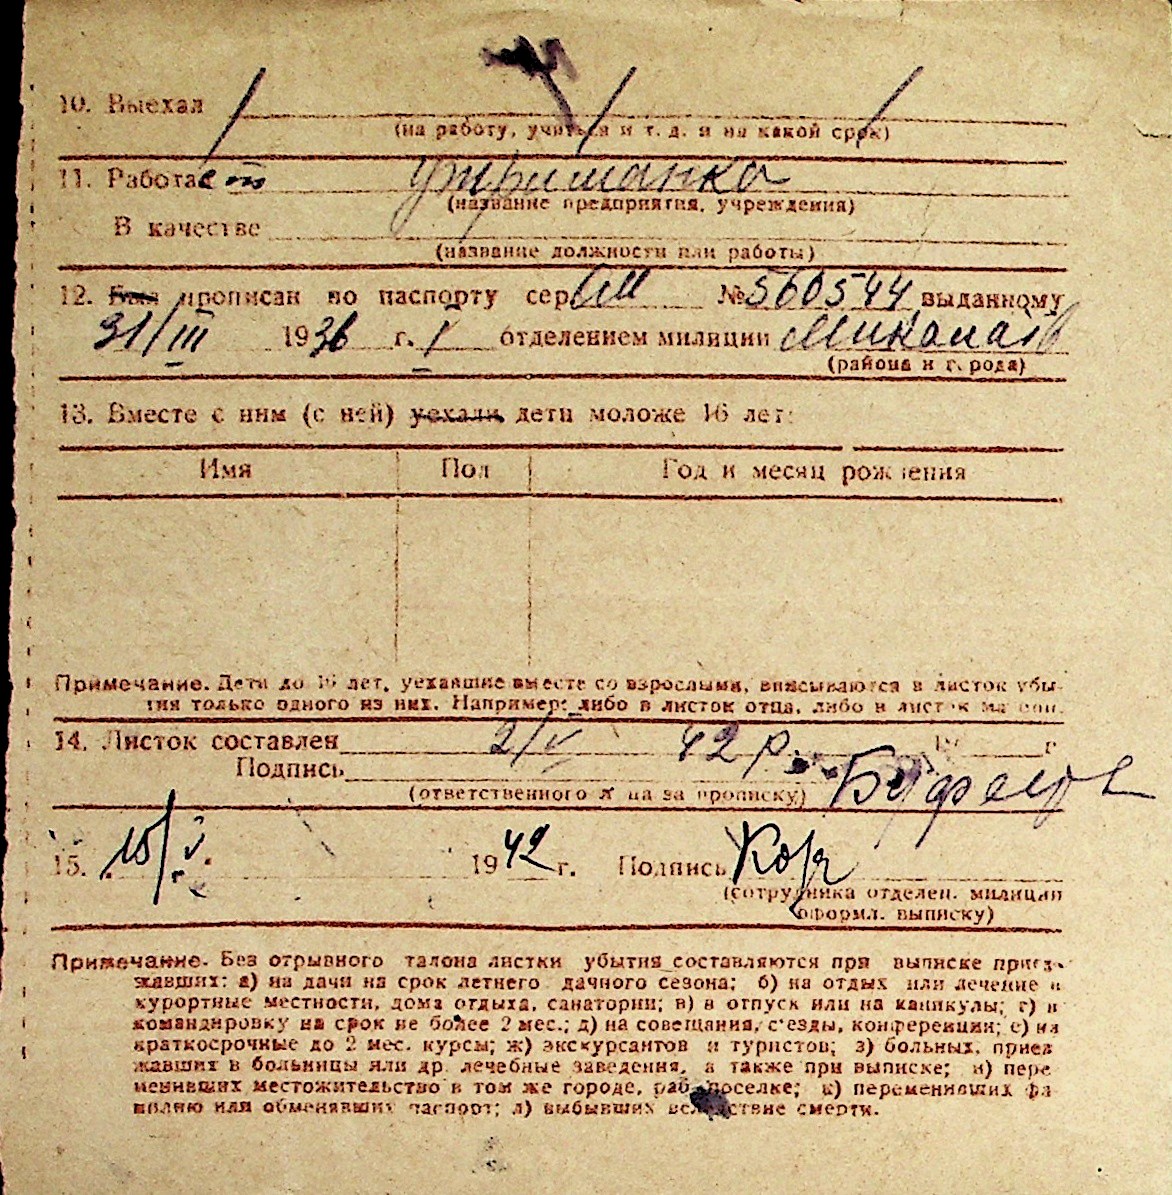 10. Выехал
(на работу, учиться и т. д. и на какой срок)
11. Работает утриманка
(название предприятия, учреждения)
В качестве
(название должности или работы)
12. Был прописан по паспорту сер. АМ № 560544 выданному
31/III 1936 г. I отделением милиции Миколаїв
(района и города)
13. Вместе с ним (с ней) уехали дети моложе 16 лет:
Имя Пол Год и месяц рождения
Примечание. Дети до 16 лет, уехавшие вместе со взрослыми, вписываются в листок убы-
тия только одного из них. Например: либо в листок отца, либо в листок матери.
14. Листок составлен 2/V 42 р. 19 г.
Подпись
(ответственного лица за прописку)
15. 15/V 1942 г. Подпись
(сотрудника отделен. милиции
оформл. выписку)
Примечание. Без отрывного талона листки убытия составляются при выписке приез-
жавших: а) на дачи на срок летнего дачного сезона; б) на отдых или лечение в
курортные местности, дома отдыха, санатории; в) в отпуск или на каникулы; г) в
командировку на срок не более 2 мес.; д) на совещания, с'езды, конференции; е) на
краткосрочные до 2 мес. курсы; ж) экскурсантов и туристов; з) больных, приез
жавших в больницы или др. лечебные заведения, а также при выписке; и) пере
менивших местожительство в том же городе, раб. поселке; к) переменивших фа
милию или обменявших паспорт; л) выбывших вследствие смерти.